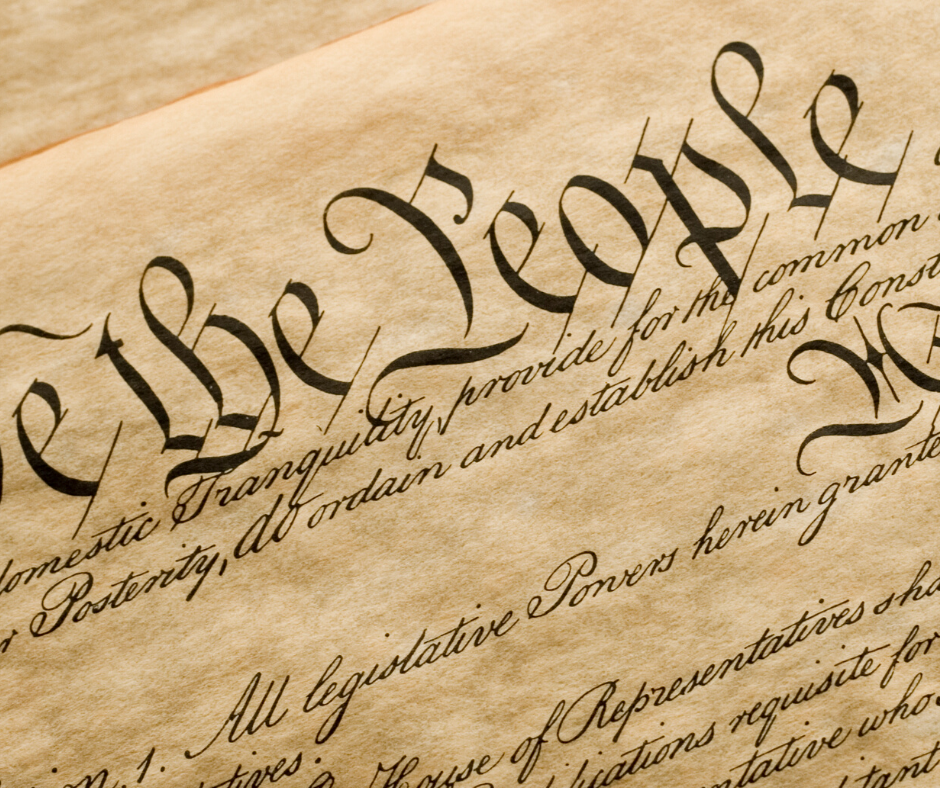 We the People
domestic Tranquility, provide for the common
Posterity, do ordain and establish this Const
All legislative Powers herein grante
1.
House of Representatives sha
tives.
ications requisite for
ntative who